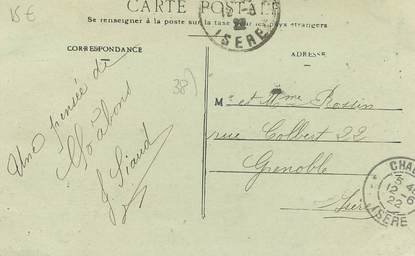 15€
CARTE POSTALE
Se renseigner à la poste sur la taxe pour les pays étrangers
22
ISERE
CORRESPONDANCE
ADRESSE
38
Une pensée de
J. Siaud
Mr et Mme Rossin
rue Colbert 22
Grenoble
Isère
CHA
12
22
ISERE